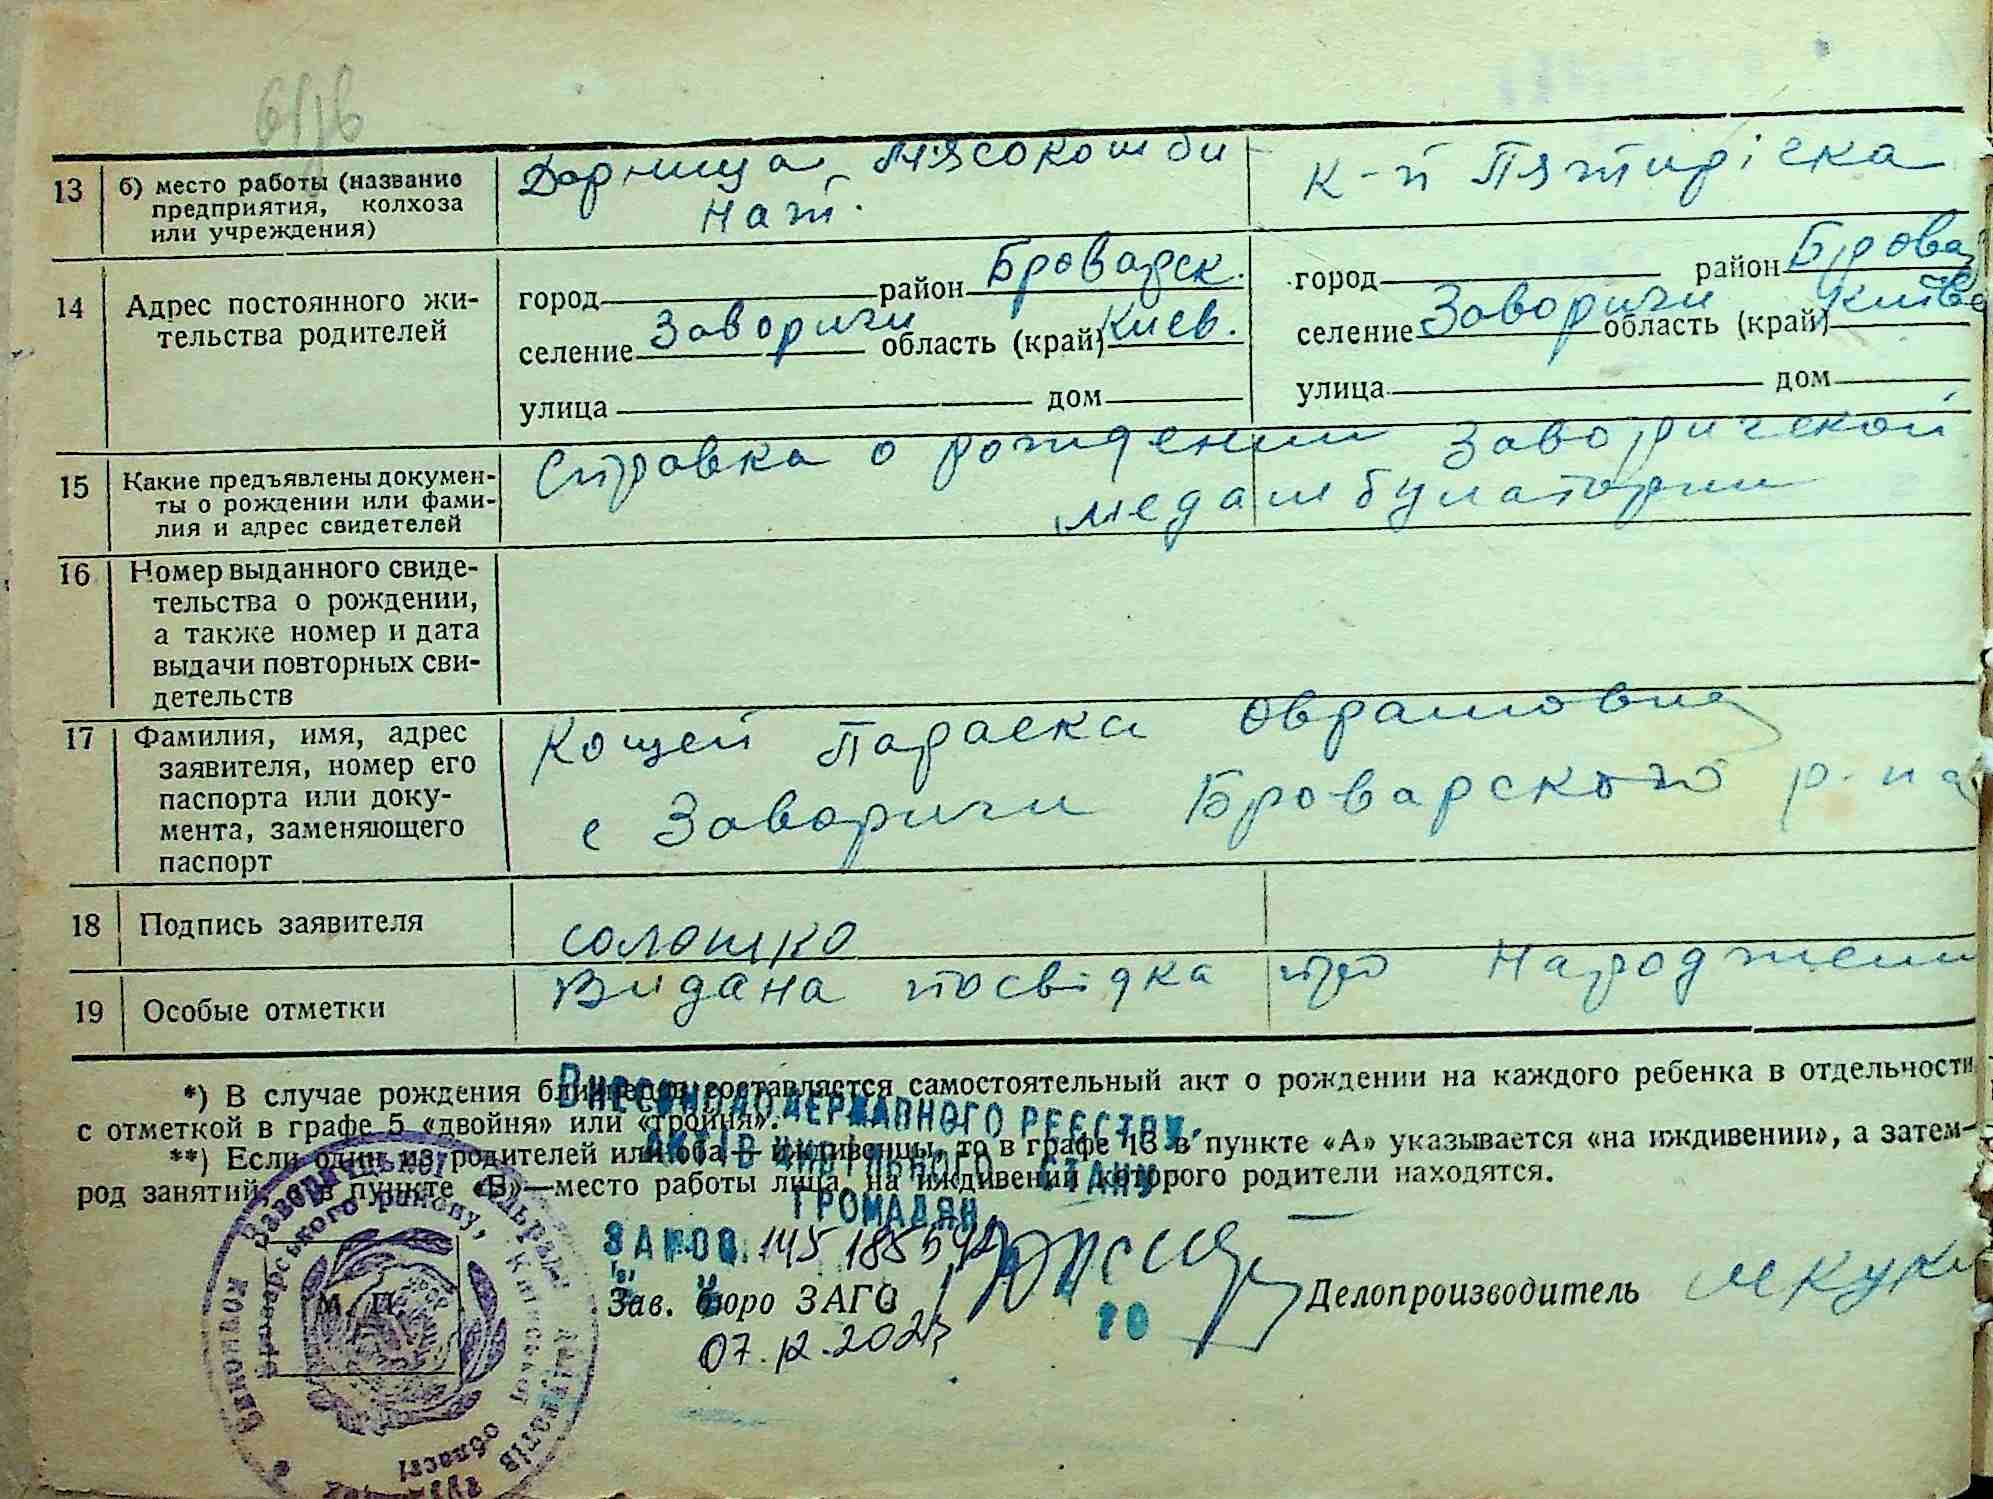 13 б) место работы (название предприятия, колхоза или учреждения) Дарница Мясокомби нат. к-п Пятирічка
14 Адрес постоянного жительства родителей
город район Броварск. город район Бровар
селение Заворичи область (край) Киев. селение Заворичи область (край) Киівс
улица дом улица дом
15 Какие предъявлены документы о рождении или фамилия и адрес свидетелей
Справка о рождении Заворичской
медамбулатории
16 Номер выданного свидетельства о рождении, а также номер и дата выдачи повторных свидетельств
17 Фамилия, имя, адрес заявителя, номер его паспорта или документа, заменяющего паспорт
Кощей Параска Оврамовна
с Заворичи Броварского р-на
18 Подпись заявителя солошко
19 Особые отметки Видана посвідка про Народжени
*) В случае рождения близнецов составляется самостоятельный акт о рождении на каждого ребенка в отдельности
с отметкой в графе 5 «двойня» или «тройня».
**) Если один из родителей или оба — иждивенцы, то в графе 13 в пункте «А» указывается «на иждивении», а затем—
род занятий, а в пункте «Б»—место работы лица, на иждивении которого родители находятся.
ВНЕСЕНО ДО ДЕРЖАВНОГО РЕЄСТРУ
АКТІВ ЦИВІЛЬНОГО СТАНУ
ГРОМАДЯН
М. П.
Зав. бюро ЗАГС Делопроизводитель
07.12.202
20
Виконком Заворицької сільради депутатів
Броварського району, Київської області